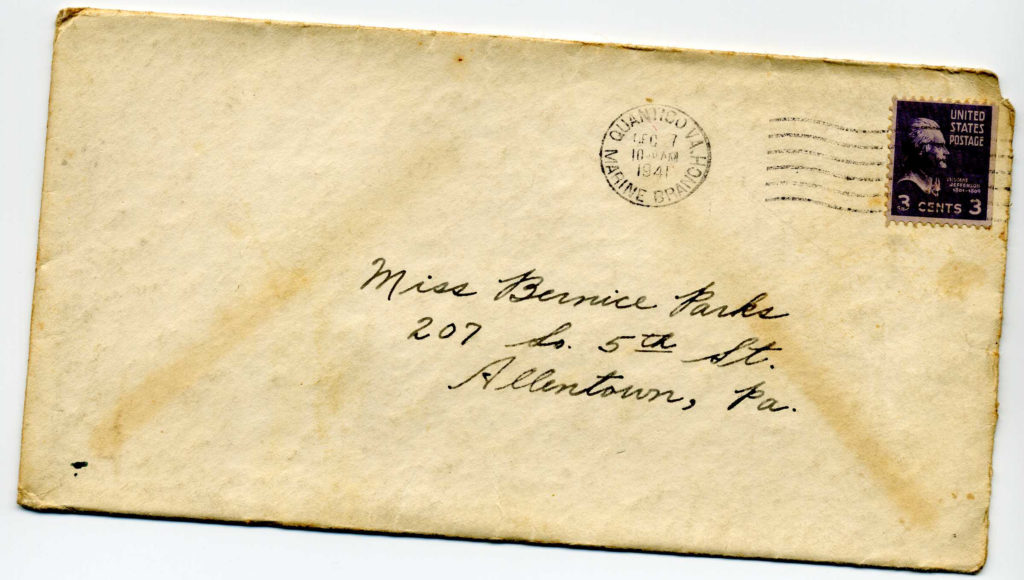 QUANTICO, VA.
DEC 7
10 AM
1941
MARINE BRANCH
UNITED
STATES
POSTAGE
JEFFERSON
1801-1809
3 CENTS 3
Miss Bernice Parks
207 So. 5th St.
Allentown, Pa.